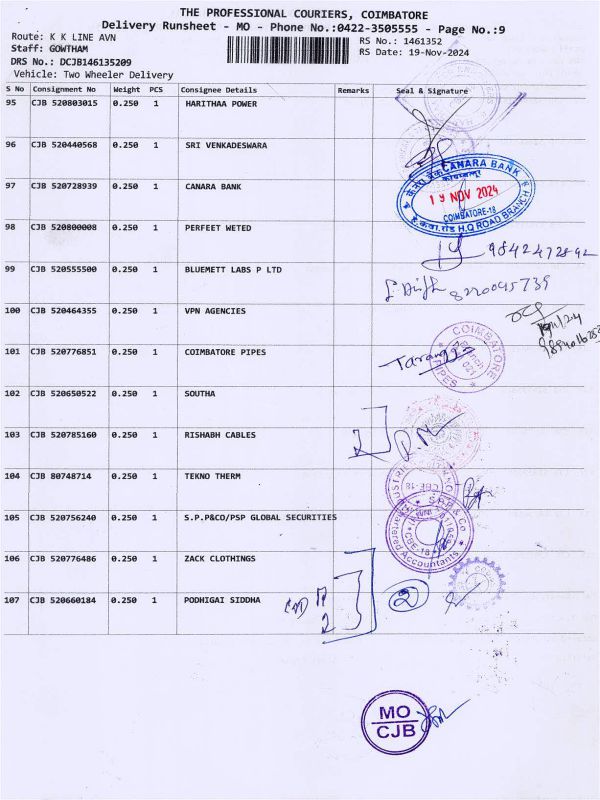 THE PROFESSIONAL COURIERS, COIMBATORE
Delivery Runsheet - MO - Phone No.:0422-3505555 - Page No.:9
Route: K K LINE AVN
RS No.: 1461352
Staff: GOWTHAM
RS Date: 19-Nov-2024
DRS No.: DCJB146135209
Vehicle: Two Wheeler Delivery
S No Consignment No Weight PCS Consignee Details Remarks Seal & Signature
95 CJB 520803015 0.250 1 HARITHAA POWER
96 CJB 520440568 0.250 1 SRI VENKADESWARA
97 CJB 520728939 0.250 1 CANARA BANK
CANARA BANK
19 NOV 2024
COIMBATORE-18
H.O ROAD BRANCH
98 CJB 520800008 0.250 1 PERFEET WETED
9842472892
99 CJB 520555500 0.250 1 BLUEMETT LABS P LTD
8220045739
100 CJB 520464355 0.250 1 VPN AGENCIES
101 CJB 520776851 0.250 1 COIMBATORE PIPES
COIMBATORE PIPES
102 CJB 520650522 0.250 1 SOUTHA
103 CJB 520785160 0.250 1 RISHABH CABLES
104 CJB 80748714 0.250 1 TEKNO THERM
CBE-18
105 CJB 520756240 0.250 1 S.P.P&CO/PSP GLOBAL SECURITIES
& Co
CBE-18
Chartered Accountants
106 CJB 520776486 0.250 1 ZACK CLOTHINGS
107 CJB 520660184 0.250 1 PODHIGAI SIDDHA
2
MO
CJB